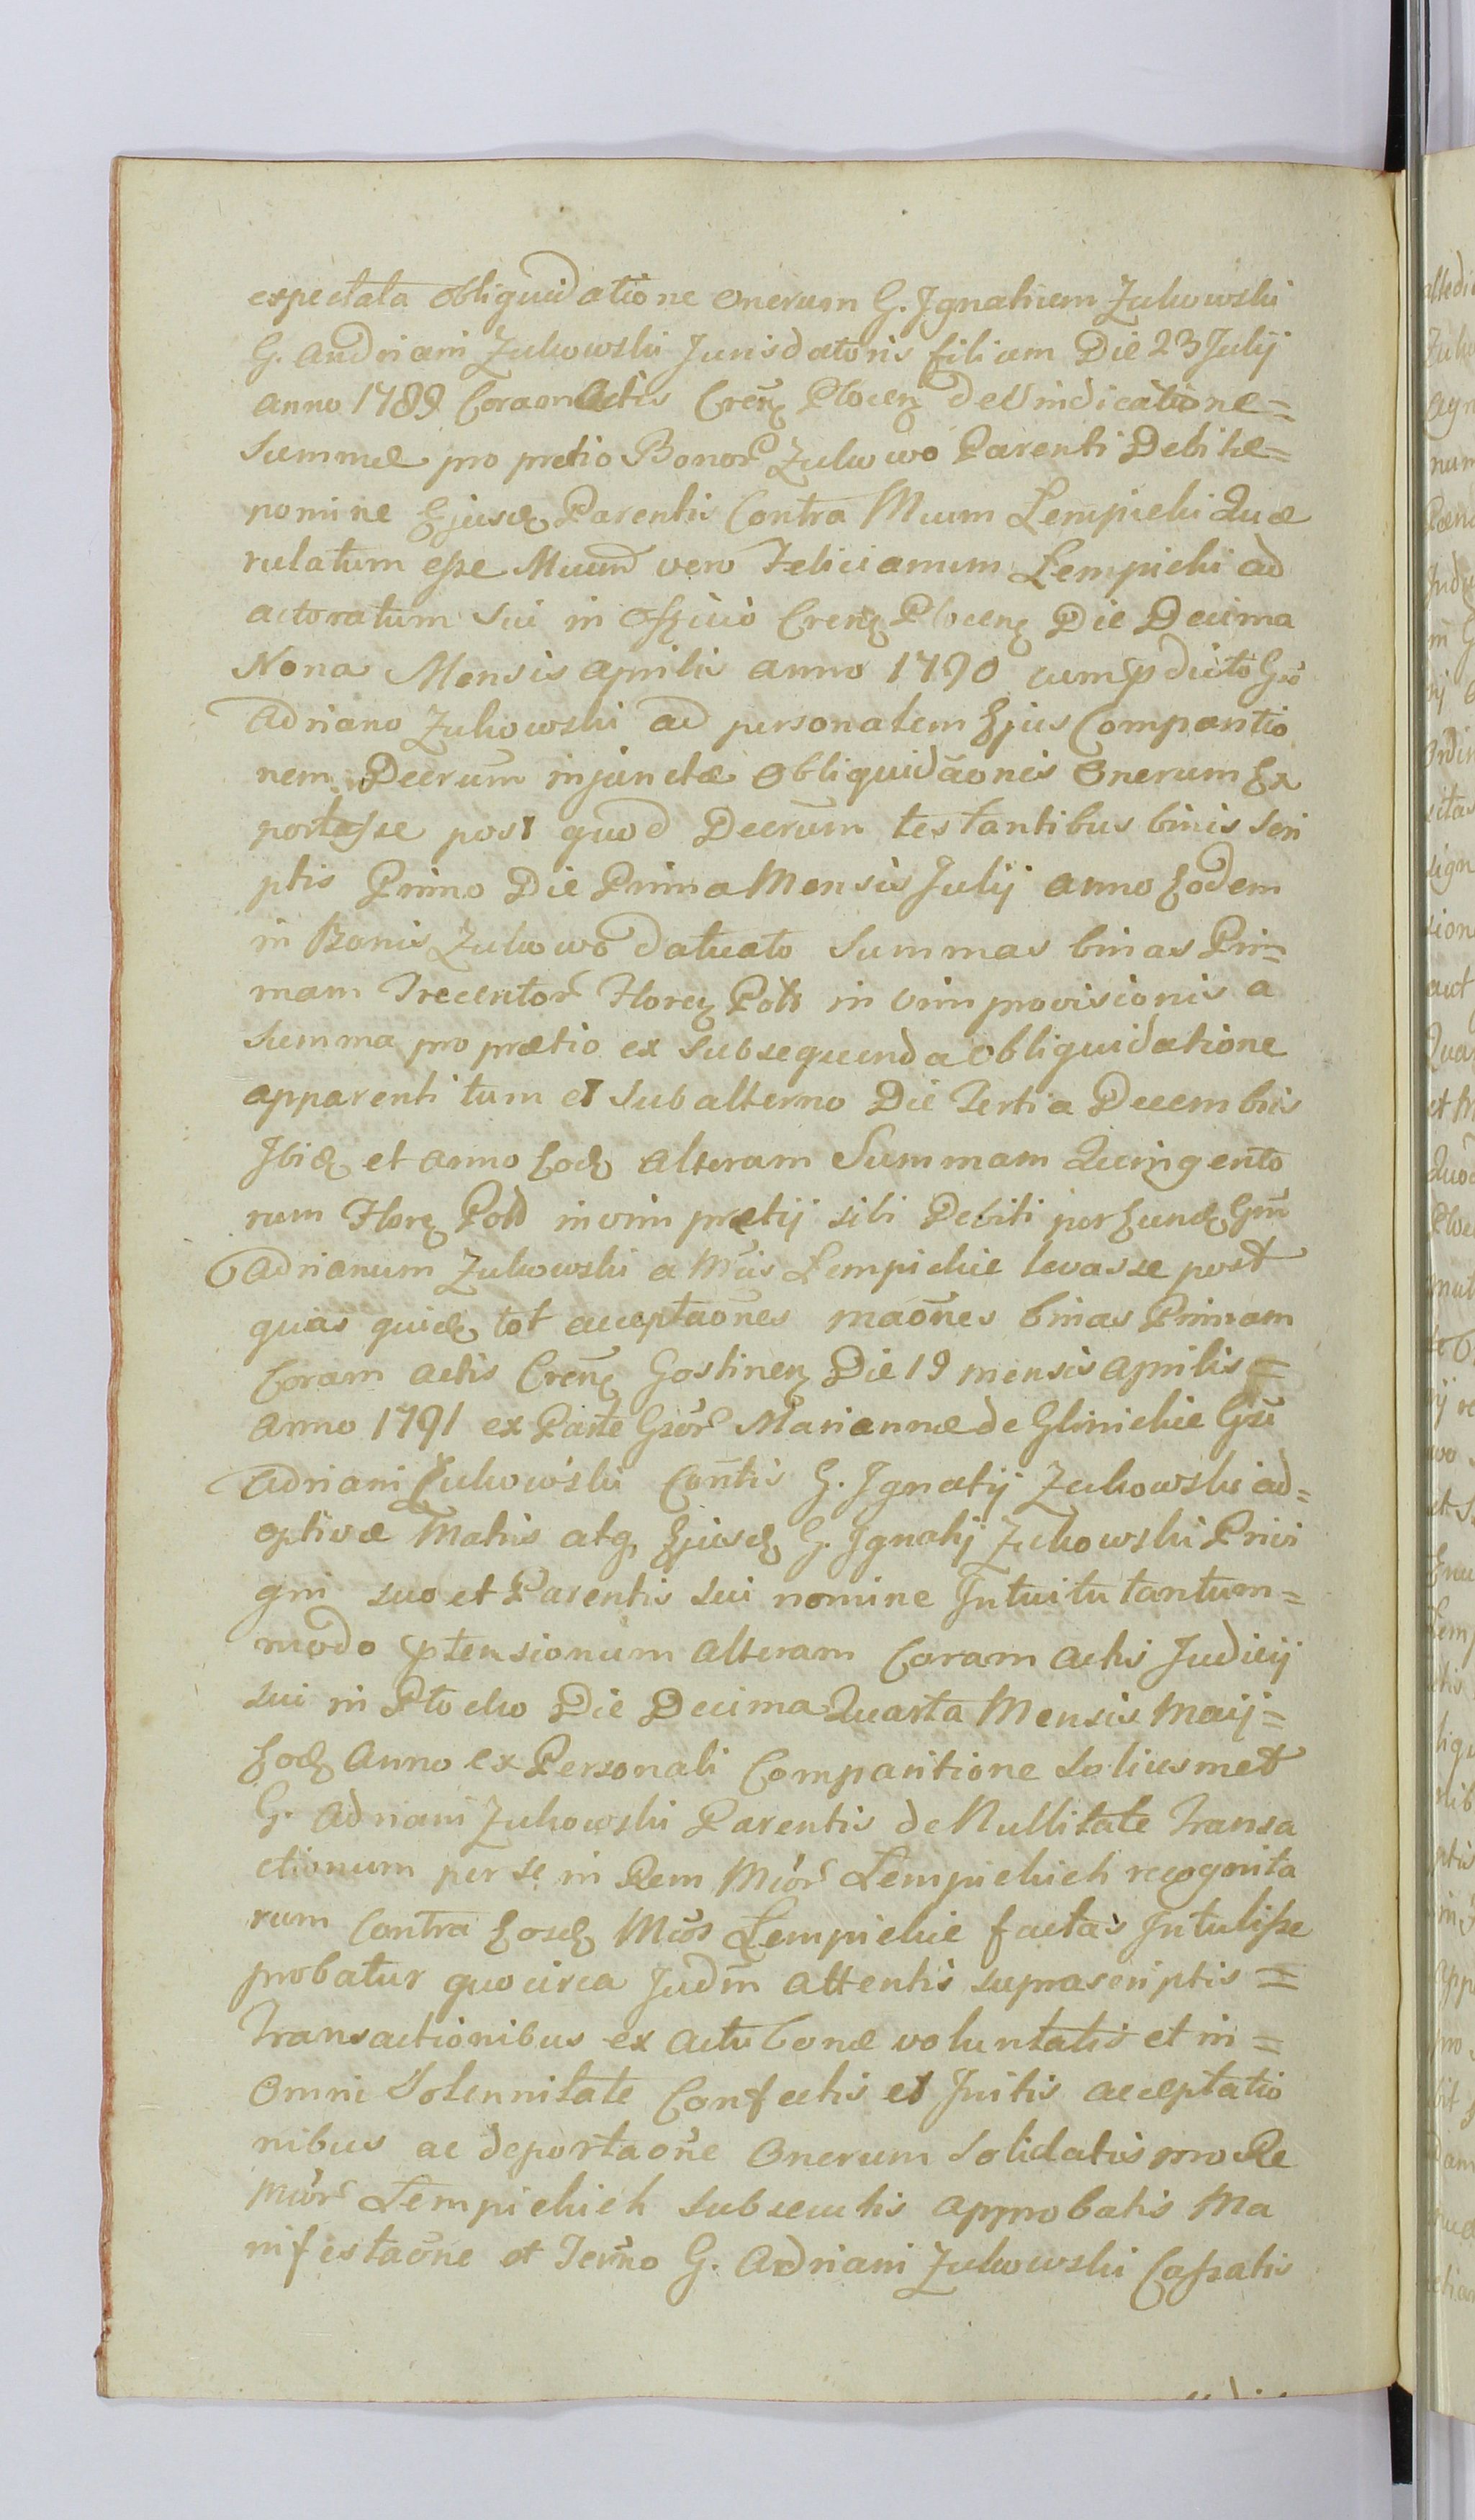 expectata obliquidatione onerum G. Ignatium Zukowski
G. Andriani Zukowski Jurisdatoris filium Die 23 Julij
anno 1789 Coram Actis Creñ Plocen de Vindicatione=
Summæ pro pretio Bonor Zukowo Parenti Debitæ=
nomine Ejusd Parentis Contra Mum Lempicki Quæ
rulatum esse Muum vero Felicianum Lempicki ad
actoratum sui in Officio Creñ Plocen Die Decima
Nona Mensis Aprilis anno 1790 cum pdicto Gso
Adriano Zukowski ad personalem Ejus Comparitio
nem Decrum injunctæ obliquidãonis Onerum Ex
portasse post quod Decrum testantibus binis Scri
ptis Primo Die Prima Mensis Julij anno Eodem
in Bonis Zukowo datuato Summas binas Pri=
mam Trecentor Floren Poll in vim provisionis a
Summa pro prætio ex subsequenda obliquidatione
apparenti tum et subalterno Die Tertia Decembris
Ibid et anno Eod alteram Summam Quingento
rum Flore Poll in vim prætij sibi Debiti per Eund Gm
Adrianum Zukowski a Mcis Lempickie levasse post
quas quid tot acceptaõnes maõnes binas Primam
Coram actis Creñ Gostinen Die 19 mensis aprilis=
anno 1791 ex Parte Gsor Mariannæ de Glinickie Gsi
Adriani Zukowski Contis G. Ignatij Zukowski ad=
optivæ Matris atq Ejusd G. Ignatij Zukowski Privi
gni suo et Parentis sui nomine Intuitu tantum=
modo ptensionum alteram Coram actis Judicij
sui in Plocko Die Decima Quarta Mensis Maij=
Eod Anno ex Personali Comparitione soliusmet
G. Adriani Zukowski Parentis de Nullitate Transa
ctionum per se in Rem Mcor Lempickich recognita
rum Contra Eosd Mcos Lempickie factas Intulisse
probatur quocirca Judm attentis suprascriptis=
Transactionibus ex actu bonæ voluntatis et in=
Omni Solennitate Confectis et Initis acceptatio
nibus ac deportaõne Onerum Solidatis pro Re
Mcor Lempickich subsecutis approbatis Ma
nifestaõne et Termo G. Adriani Zukowski Cassatis